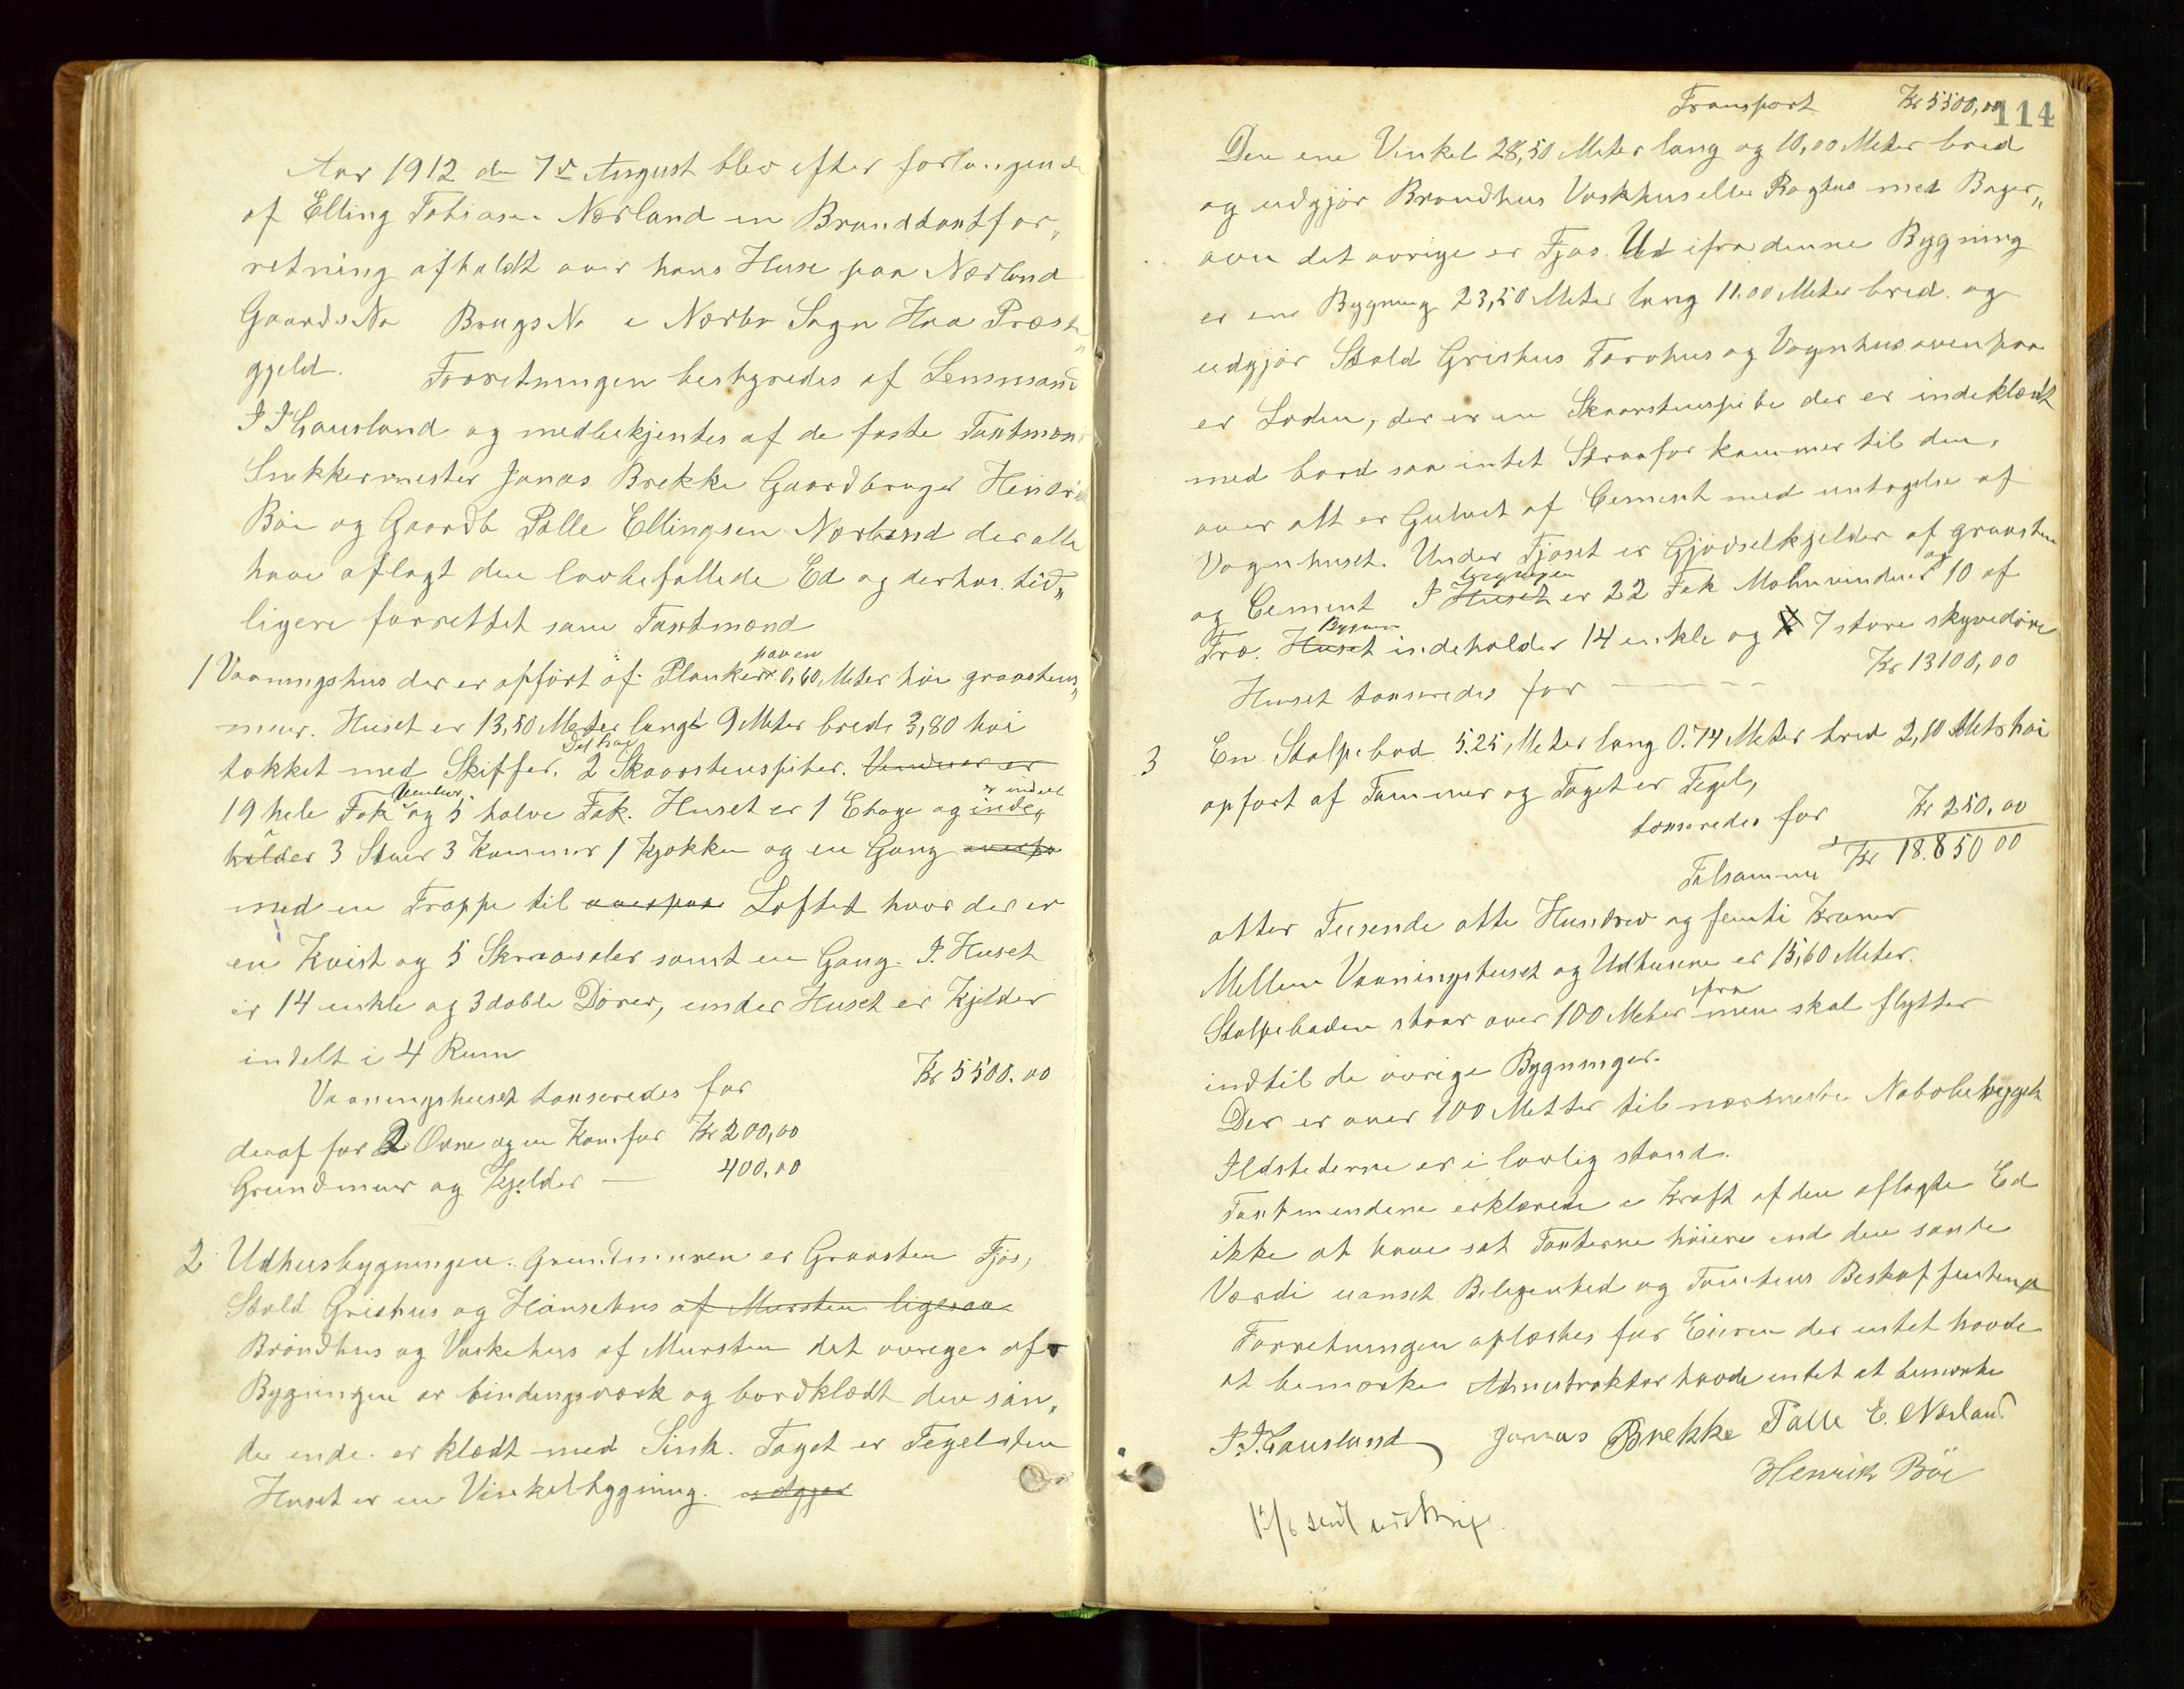 Aar 1912 den 7de August blev efter forlangende
af Elling Tobiasen Nærland en Brandtaxtfor„
retning afholdt over hans Huse paa Nærland
Gaards No Brugs No i Nærbø Sogn Haa Præste„
gjeld. Forretningen bestyredes af Lensmand
I I Gausland og medbekjentes af de faste Taxtmænd
Snekkermester Jonas Brekke Gaardbruger Henrik
Bøe og Gaardb Palle Ellingsen Nærland der alle
have aflagt den lovbefallede Ed og derhos tid„
ligere forrettet som Taxtmænd
1 Vaaningshus der er opført af Planker paa en 0,60 Meter høi graastens„
muur. Huset er 13,50 Meter langt 9 Meter bred 3,80 høi
tækket med Skiffer. Det har 2 Skaarstenspiber. Vinduer er
19 hele Fak Vinduer og 5 halve Fak. Huset er 1 Etage og er indeel inde„
holder 3 Stuer 3 Kammer 1 Kjøkken og en Gang ovenpa
med en Trappe til ovenpaa Loftet hvor der er
en Kvist og 5 Skraasaler samt en Gang. I Huset
er 14 enkle og 3 doble Dører, under Huset er Kjelder
indelt i 4 Rum
Vaaningshuset taxeredes for Kr 5500.00
deraf for 2 Ovne og en Komfur Kr 200,00
Grundmuur og Kjelder — 400,00
2 Udhusbygningen. Grundmuren er Graasten Fjøs,
Stald Grishus og Hønsehus af Mursten ligesaa
Brøndhus og Vaskehus af Mursten det øvrige af
Bygningen er bindingsværk og bordklædt den søn„
dre ende er klædt med Sink. Taget er Tegelsten
Huset er en Vinkelbygning. udgjør
Transport Kr 5500,00
114
Den ene Vinkel 28,50 Meter lang og 10,00 Meter bred
og udgjør Brøndhus Vaskhus eller Røghus med Bager„
oven det øvrige er Fjøs. Ud ifra denne Bygning
er en Bygning 23,50 Meter lang 11.00 Meter bred og
udgjør Stald Grishus Torvhus og Vognhus ovenpaa
er Loden, der er en Skaarstenspibe der er indeklædt
med bord saa intet Straafor kommer til den,
over alt er Gulvet af Cement med untagelse af
Vognhuset. Under Fjøset er Gjødselkjelder af graasten
og Cement I Huset Bygningen er 22 Fak Malmvinduer og 10 af
Træ. Huset Bygnin indeholder 14 enkle og 7 store skyvedøre
Huset taxeredes for — — — Kr 13100,00
3 En Stolpebod 5.25 Meter lang 0.74 Meter bred 2,10 Metr høi
opført af Tømmer og Taget er Tegel,
taxeredes for Kr 250,00
Tilsammen Kr 18.850 00
atten Tusende otte Hundrev og femti Kroner
Mellem Vaaningshuset og Udhusene er 15,60 Meter.
Stolpeboden staar over 100 Meter ifra men skal flyttes
indtil de øvrige Bygninger.
Der er over 100 Metter til nærmeste Nabobebyggels
Ildstederne er i lovlig stand.
Taxtmendene erklærede i Kraft af den aflagte Ed
ikke at have sat Taxterne høiere end den sande
Værdi uanset Beligenhed og Tomtens Beskaffenhen
Forretningen oplæstes for Eieren der intet havde
at bemærke Administraktor havde intet at bemærke
I. I. Gausland Jonas Brekke Palle E. Nærland
Henrik Böe